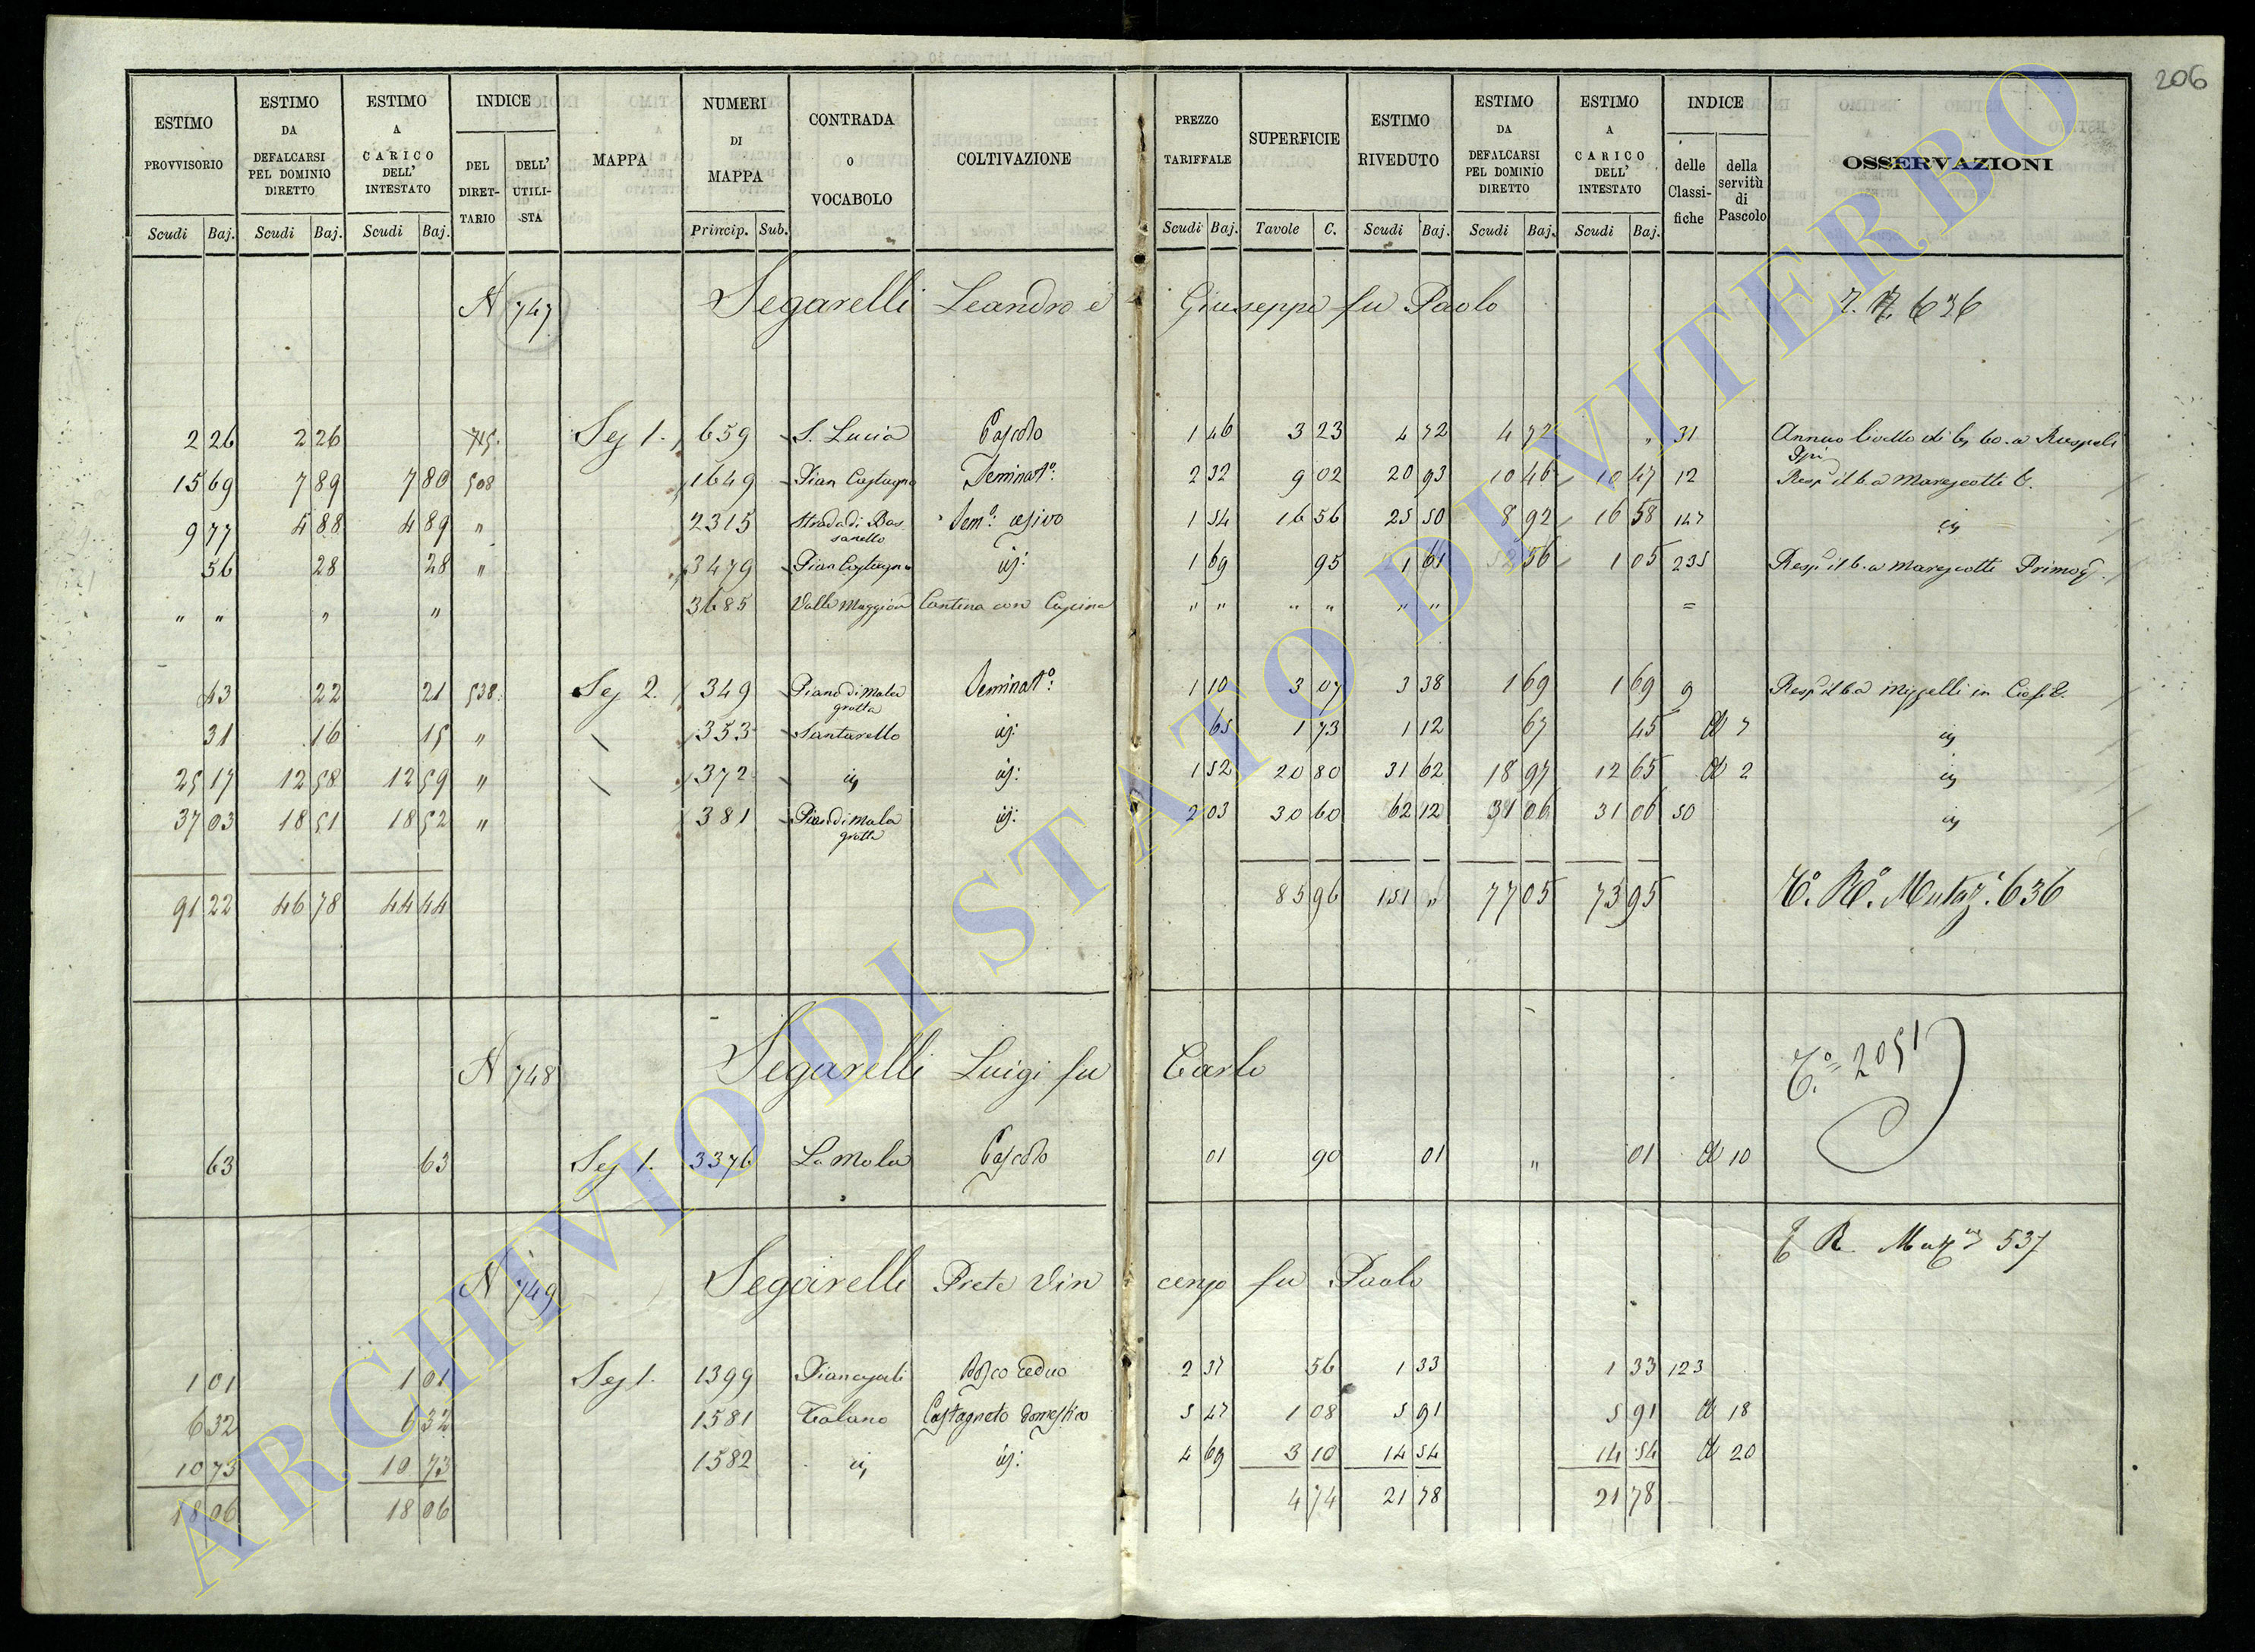 206
ESTIMO PROVVISORIO | ESTIMO DA DEFALCARSI PEL DOMINIO DIRETTO | ESTIMO A CARICO DELL' INTESTATO | INDICE DEL DIRETTARIO | DELL' UTILISTA | MAPPA | NUMERI DI MAPPA | CONTRADA O VOCABOLO | COLTIVAZIONE | PREZZO TARIFFALE | SUPERFICIE | ESTIMO RIVEDUTO | ESTIMO DA DEFALCARSI PEL DOMINIO DIRETTO | ESTIMO A CARICO DELL' INTESTATO | INDICE delle Classifiche | della servitù di Pascolo | OSSERVAZIONI
Scudi Baj. | Scudi Baj. | Scudi Baj. | Princip. Sub. | Scudi Baj. | Tavole C. | Scudi Baj. | Scudi Baj. | Scudi Baj.
N 747 Segarelli Leandro e Giuseppe fu Paolo 636
2 26 | 2 26 | 715 | Sez 1. | 659 | S. Lucia | Pascolo | 1 46 | 3 23 | 4 72 | 4 72 | " | 31 | Annuo
15 69 | 7 89 | 7 80 | 508 | 1649 | Pian Castagno | Seminato: | 2 32 | 9 02 | 20 93 | 10 46 | 10 47 | 12 | Resp il 6. a Marescotti
9 77 | 4 88 | 4 89 | " | 2315 | Strada di Bassanello | Sem: olivo | 1 54 | 16 56 | 25 50 | 8 92 | 16 58 | 147
56 | 28 | 28 | " | 3479 | Pian Castagno | 1 69 | 95 | 1 61 | 56 | 1 05 | 235 | Resp il 6. a Marescotti
" " | " | " | 3685 | Valle Maggiore | Cantina con | " " | " " | " " | =
43 | 22 | 21 | 538 | Sez 2. | 349 | Piano di Mala grotta | Seminato: | 1 10 | 3 07 | 3 38 | 1 69 | 1 69 | 9
31 | 16 | 15 | " | 353 | Santarello | 65 | 1 73 | 1 12 | 67 | 45 | 7
25 17 | 12 58 | 12 59 | " | 372 | 1 52 | 20 80 | 31 62 | 18 97 | 12 65 | 2
37 03 | 18 51 | 18 52 | " | 381 | Pian di Mala grotta | 2 03 | 30 60 | 62 12 | 31 06 | 31 06 | 50
91 22 | 46 78 | 44 44 | 85 96 | 151 " | 77 05 | 73 95 | 636
N 748 Segarelli Luigi fu Carlo 2051
63 | 63 | Sez 1. | 3376 | La Mola | Pascolo | 01 | 90 | 01 | " | 01 | 10
N 749 Segarelli Prete Vincenzo fu Paolo 537
1 01 | 1 01 | Sez 1. | 1399 | Bosco ceduo | 2 37 | 56 | 1 33 | 1 33 | 123
6 32 | 6 32 | 1581 | Castagneto domestico | 5 47 | 1 08 | 5 91 | 5 91 | 18
10 73 | 10 73 | 1582 | 4 69 | 3 10 | 14 54 | 14 54 | 20
18 06 | 18 06 | 4 74 | 21 78 | 21 78
ARCHIVIO DI STATO DI VITERBO